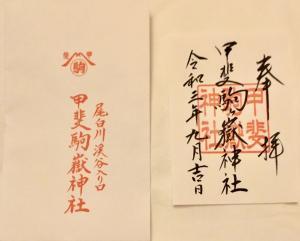 駒
尾白川渓谷入り口
甲斐駒嶽神社
奉拝
甲斐駒ヶ嶽神社
令和三年九月吉日
甲斐
神社